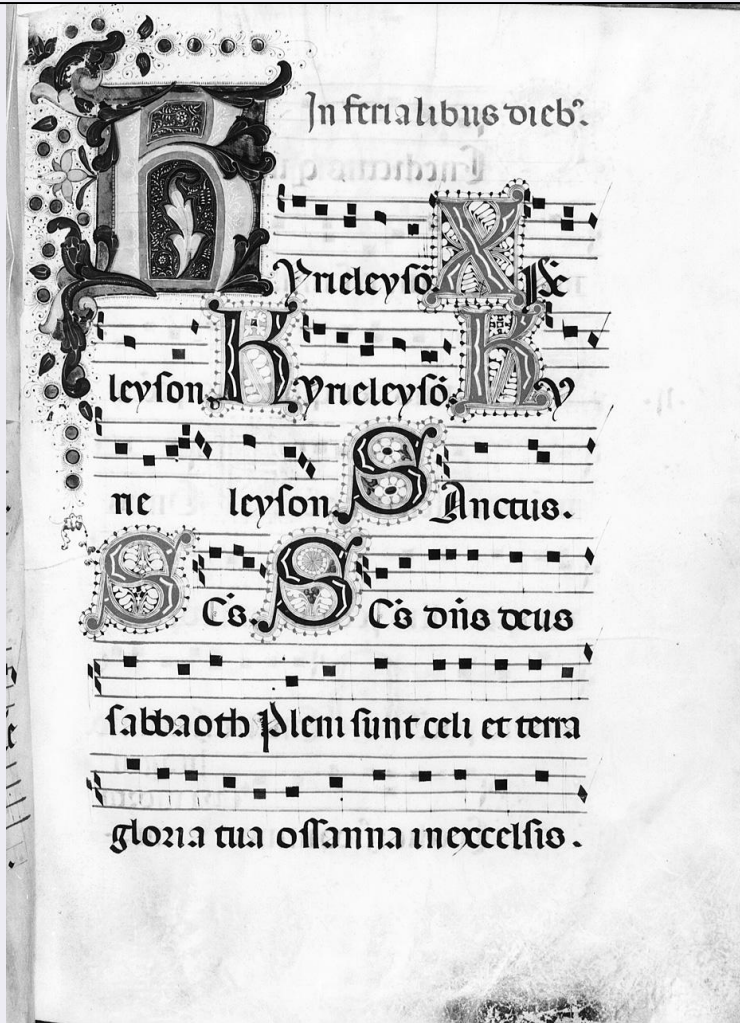 In ferialibus dieb᷒.
KYrieleysō XPē
leyson. KYrieleysō. KY
rie leyson. SAnctus.
SC̄s. SC̄s dn̄s deus
sabbaoth Pleni sunt celi et terra
gloria tua ossanna inexcelsis.